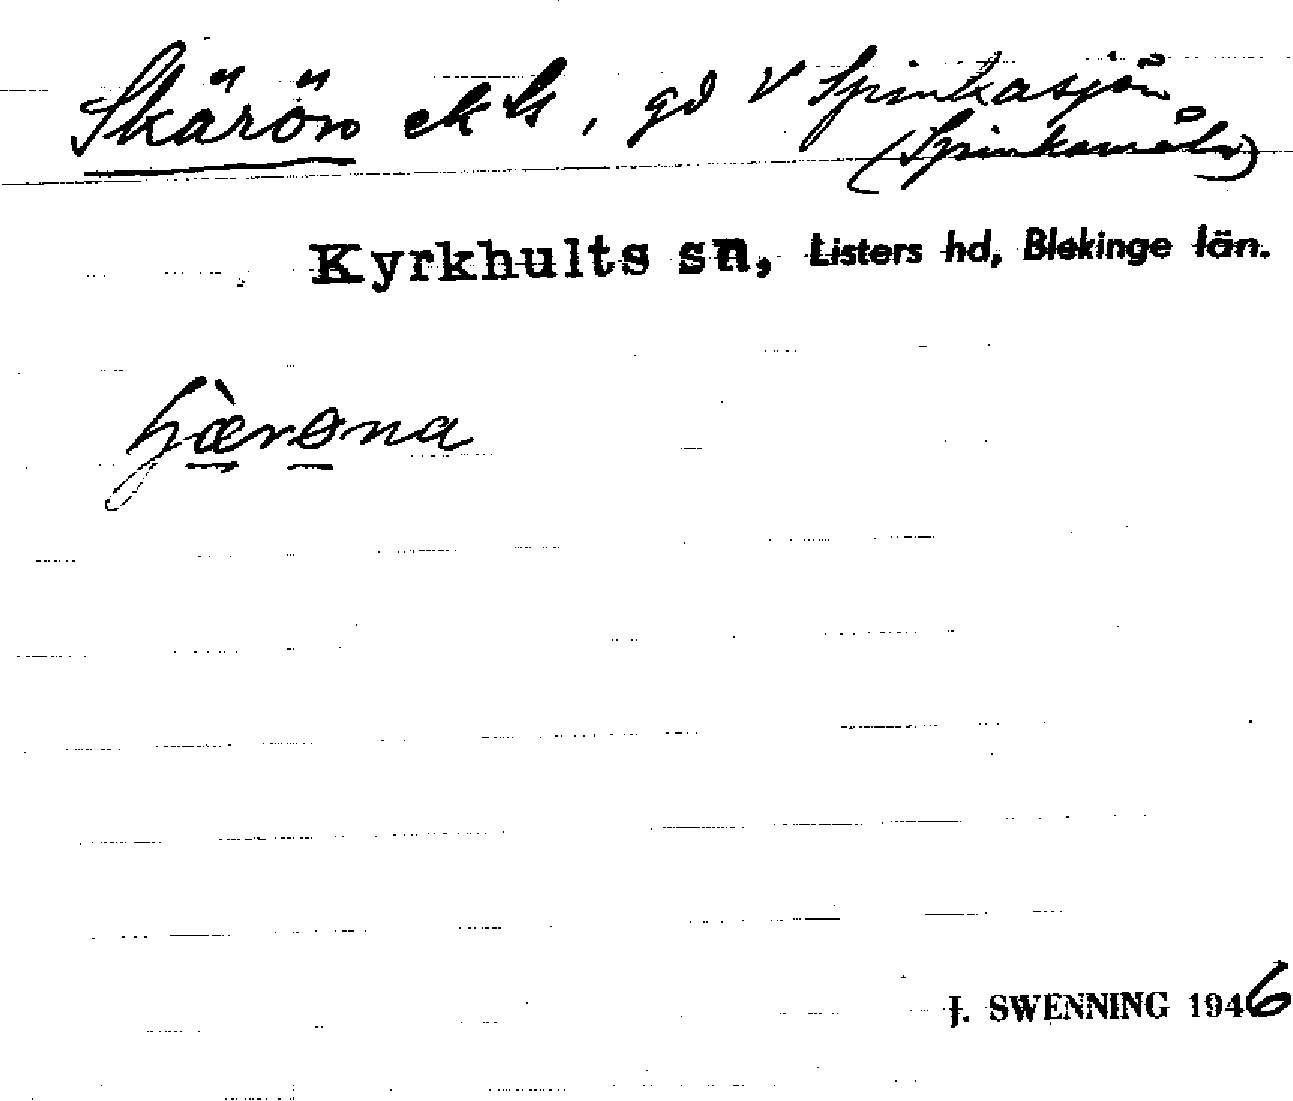 Skärön ekh, gd V Spinkasjön
(Spinkamåla)
Kyrkhults sn, Listers hd, Blekinge län.
J. SWENNING 1946